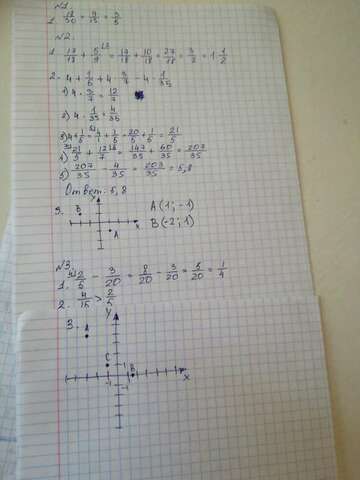 №1
1. 18/30 = 9/15 = 3/5
№2.
1. 17/18 + 5/9 = 17/18 + 10/18 = 27/18 = 3/2 = 1 1/2
2. 4 + 1/5 + 4 · 3/7 - 4 · 1/35
1) 4 · 3/7 = 12/7
2) 4 · 1/35 = 4/35
3) 4 + 1/5 = 4/1 + 1/5 = 20/5 + 1/5 = 21/5
4) 21/5 + 12/7 = 147/35 + 60/35 = 207/35
5) 207/35 - 4/35 = 203/35 = 5,8
Ответ: 5,8
3. y A(1; -1)
B x B(-2; 1)
A
№3
1. 2/5 - 3/20 = 8/20 - 3/20 = 5/20 = 1/4
2. 4/15 > 2/5
3. y
A
C
1 B
-1 x
-1